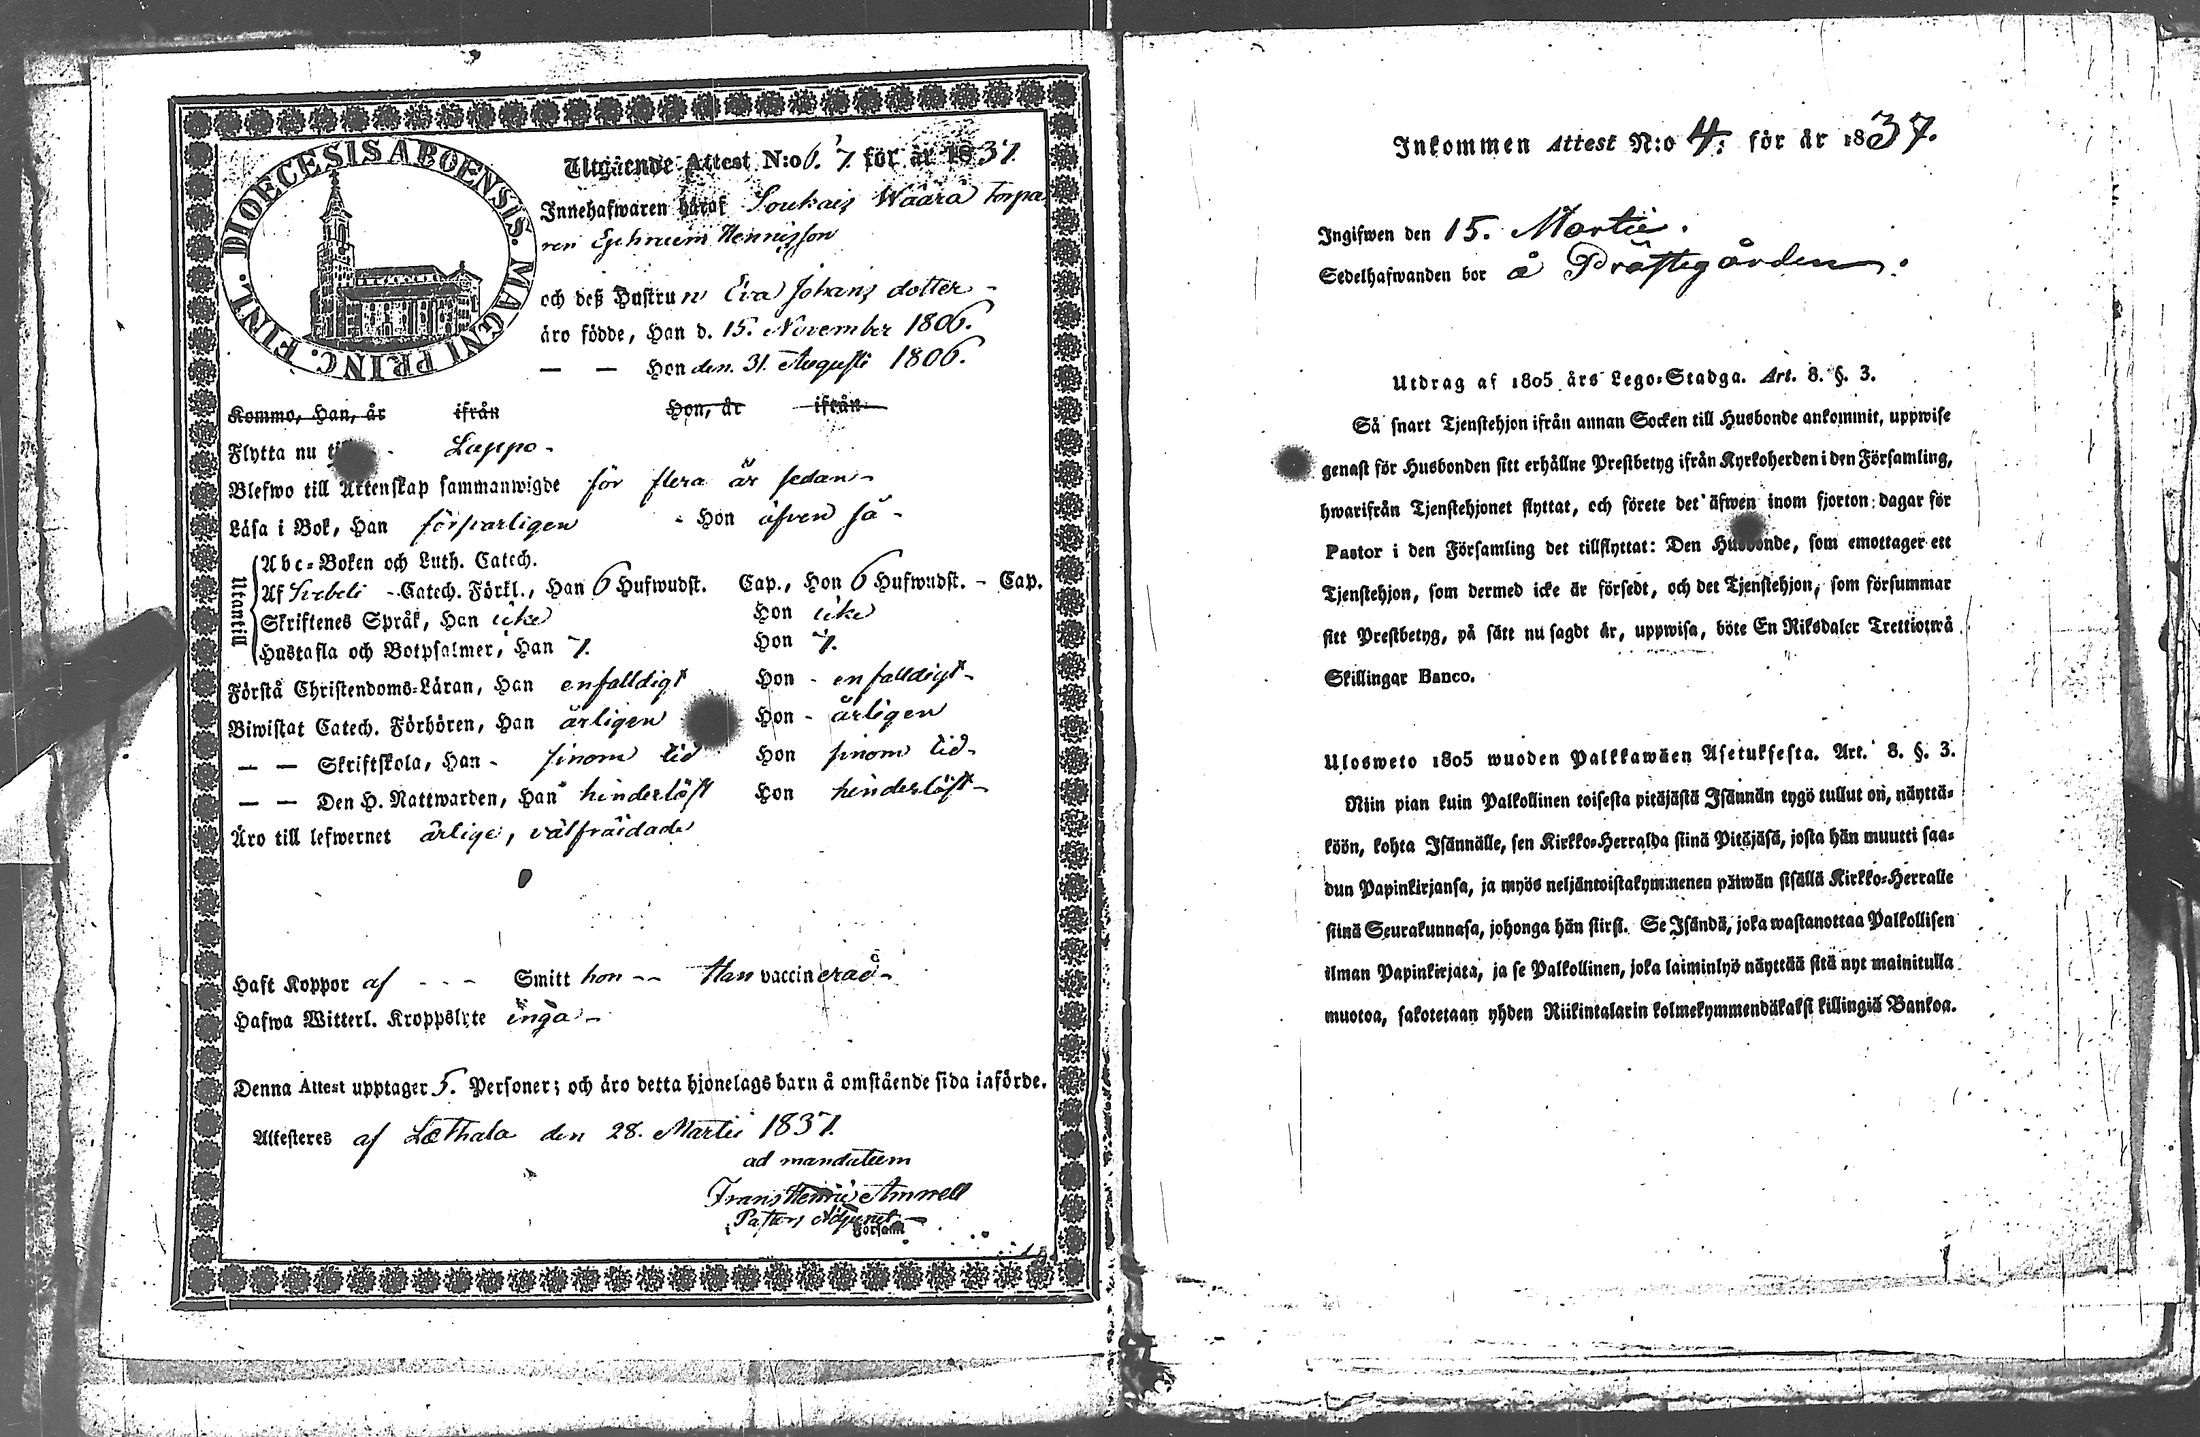 DIOECESIS ABOENSIS. MAGNI PRINC. FINL.
Utgående Attest N:o 6. 7. för år 1837.
Innehafwaren häraf Soukais Waara Torpa
ren Ephraim Hennisson
och deß Hustru n Eva Johans dotter -
äro födde, Han d. 15. November 1806.
— — Hon den. 31. Augusti 1806.
Kommo, Han, år ifrån Hon, år ifrån
Flytta nu till - Lappo -
Blefwo till Äktenskap sammanwigde för flera år sedan -
Läsa i Bok, Han försvarligen - Hon äfven så -
Utantill
Abc-Boken och Luth. Catech.
Af Svebeli - Catech. Förkl., Han 6 Hufwudst. Cap., Hon 6 Hufwudst. - Cap.
Skriftenes Språk, Han icke Hon icke
Hustafla och Botpsalmer, Han 7. Hon 7.
Förstå Christendoms-Läran, Han enfalldigt Hon - enfalldigt -
Biwistat Catech. Förhören, Han årligen Hon - årligen
— — Skriftskola, Han - sinom tid Hon sinom tid -
— — Den H. Nattwarden, Han hinderlöst Hon hinderlöst -
Äro till lefwernet ärlige, välfräjdade
Haft Koppor af - - - Smitt hon -- Han vaccinerad -
Hafwa Witterl. Kroppslyte inga -
Denna Attest upptager 5. Personer; och äro detta hjonelags barn å omstående sida införde.
Attesteres af Lethala den 28. Martii 1837.
ad mandatum
Frans Henric Amnell
Pastors Adjunct
i Församl
Inkommen Attest N:o 4. för år 1837.
Ingifwen den 15. Martii.
Sedelhafwanden bor å Prästegården.
Utdrag af 1805 års Lego-Stadga. Art. 8. §. 3.
Så snart Tjenstehjon ifrån annan Socken till Husbonde ankommit, uppwise
genast för Husbonden sitt erhållne Prestbetyg ifrån Kyrkoherden i den Församling,
hwarifrån Tjenstehjonet flyttat, och förete det äfwen inom fjorton dagar för
Pastor i den Församling det tillflyttat: Den Husbonde, som emottager ett
Tjenstehjon, som dermed icke är försedt, och det Tjenstehjon, som försummar
sitt Prestbetyg, på sätt nu sagdt är, uppwisa, böte En Riksdaler Trettiotwå
Skillingar Banco.
Ulosweto 1805 wuoden Palkkawäen Asetuksesta. Art. 8. §. 3.
Niin pian kuin Palkollinen toisesta pitäjästä Isännän tygö tullut on, näyttä-
köön, kohta Isännälle, sen Kirkko-Herralda siinä Pitäjäsä, josta hän muutti saa-
dun Papinkirjansa, ja myös neljäntoistakymmenen päiwän sisällä Kirkko-Herralle
siinä Seurakunnasa, johonga hän siirsi. Se Isändä, joka wastanottaa Palkollisen
ilman Papinkirjata, ja se Palkollinen, joka laiminlyö näyttää sitä nyt mainitulla
muotoa, sakotetaan yhden Riikintalarin kolmekymmendäkaksi killingiä Bankoa.